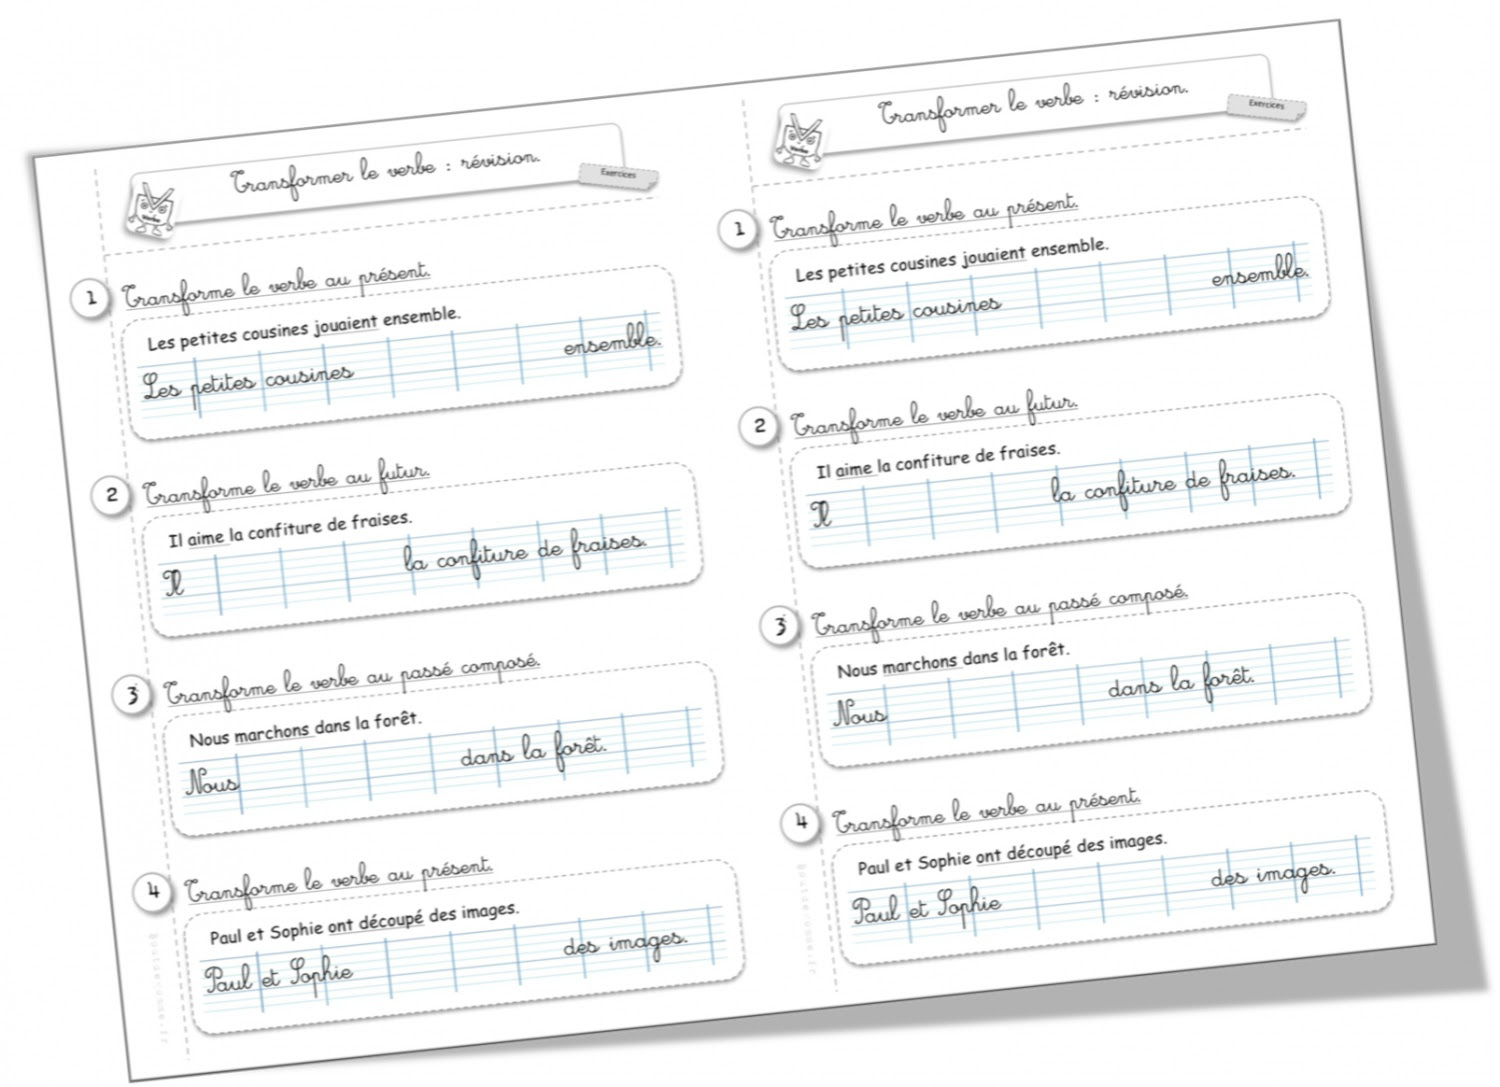 Transformer le verbe : révision.
Exercices
Verbe
1 Transforme le verbe au présent.
Les petites cousines jouaient ensemble.
Les petites cousines ensemble.
2 Transforme le verbe au futur.
Il aime la confiture de fraises.
Il la confiture de fraises.
3 Transforme le verbe au passé composé.
Nous marchons dans la forêt.
Nous dans la forêt.
4 Transforme le verbe au présent.
Paul et Sophie ont découpé des images.
Paul et Sophie des images.
boutdegomme.fr
Transformer le verbe : révision.
Exercices
Verbe
1 Transforme le verbe au présent.
Les petites cousines jouaient ensemble.
Les petites cousines ensemble.
2 Transforme le verbe au futur.
Il aime la confiture de fraises.
Il la confiture de fraises.
3 Transforme le verbe au passé composé.
Nous marchons dans la forêt.
Nous dans la forêt.
4 Transforme le verbe au présent.
Paul et Sophie ont découpé des images.
Paul et Sophie des images.
boutdegomme.fr